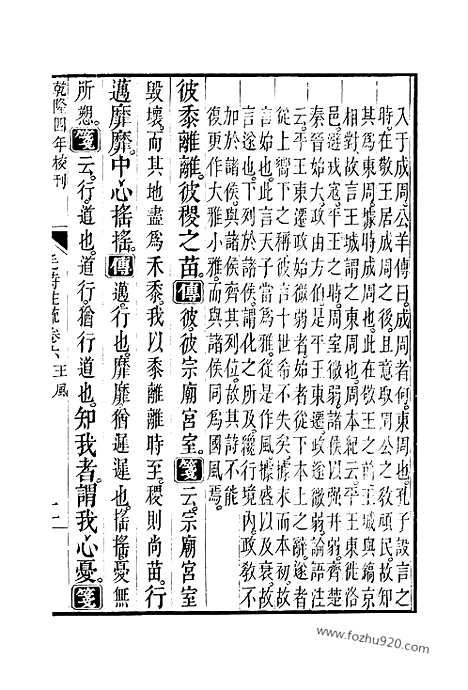 入于成周公羊傳曰成周者何東周也孔子設言之
時在敬王居成周之後且意取周公之敎頑民故知
其爲東周據時成周也此在敬王之前王城與鎬京
相對故言王城謂之東周也周本紀云平王東徙洛
邑避戎寇平王之時周室微弱諸侯以强并弱齊楚
秦晉始大政由方伯是平王東遷政遂微弱論語注
云平王東遷政始微弱者始者從下本上之辭遂者
從上嚮下之稱彼言十世希不失矣據末而本初故
言始也此言天子當爲雅從是作風據盛以及衰故
言遂也下列於諸侯謂化之所及纔行境內政敎不
加於諸侯與諸侯齊其列位故其詩不能
復更作大雅小雅而與諸侯同爲國風焉
彼黍離離彼稷之苗傳彼彼宗廟宮室箋云宗廟宮室
毀壞而其地盡爲禾黍我以黍離離時至稷則尚苗行
邁靡靡中心搖搖傳邁行也靡靡猶遲遲也搖搖憂無
所愬箋云行道也道行猶行道也知我者謂我心憂箋
乾隆四年校刊
毛詩注疏卷六 王風
www.fozhu920.com